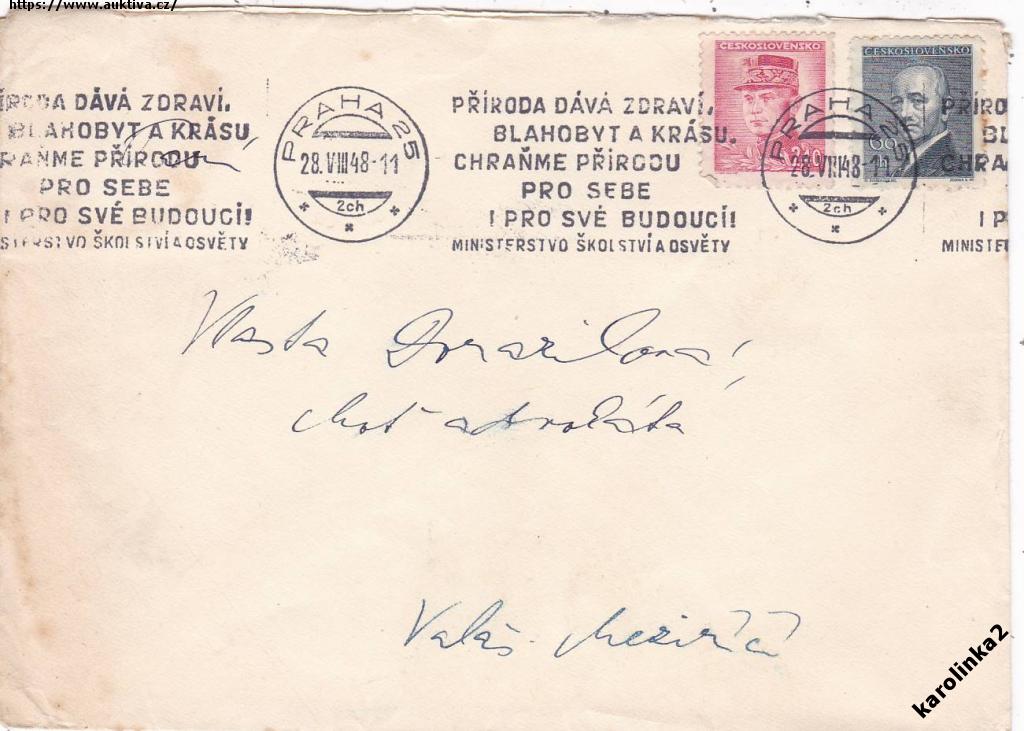 https://www.auktiva.cz/
ČESKOSLOVENSKO
2·40
ČESKOSLOVENSKO
60
ÍRODA DÁVÁ ZDRAVÍ,
BLAHOBYT A KRÁSU
RAŇME PŘÍRODU
PRO SEBE
I PRO SVÉ BUDOUCÍ!
STERSTVO ŠKOLSTVÍ A OSVĚTY
PRAHA 25
28.VIII48-11
2ch
PŘÍRODA DÁVÁ ZDRAVÍ,
BLAHOBYT A KRÁSU.
CHRAŇME PŘÍRODU
PRO SEBE
I PRO SVÉ BUDOUCÍ!
MINISTERSTVO ŠKOLSTVÍ A OSVĚTY
PRAHA 25
28.VIII48-11
2ch
PŘÍRO
BL
CHRAŇM
I P
MINISTE
Vlasta Dorazilová,
choť advokáta
Valaš. Meziříčí
karolinka2